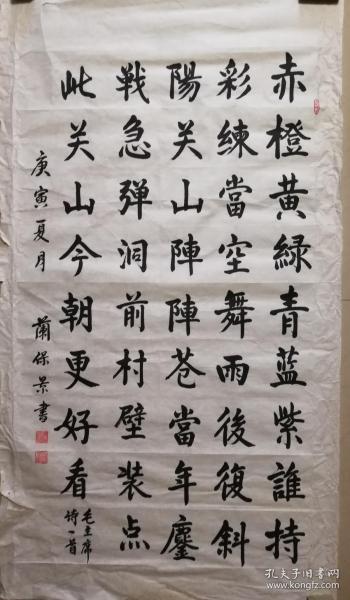 赤橙黄緑青蓝紫誰持
彩練當空舞雨後復斜
陽关山陣陣苍當年鏖
戦急弹洞前村壁装点
此关山今朝更好看
毛主席
诗一首
庚寅夏月 蘭保景書
孔夫子旧书网